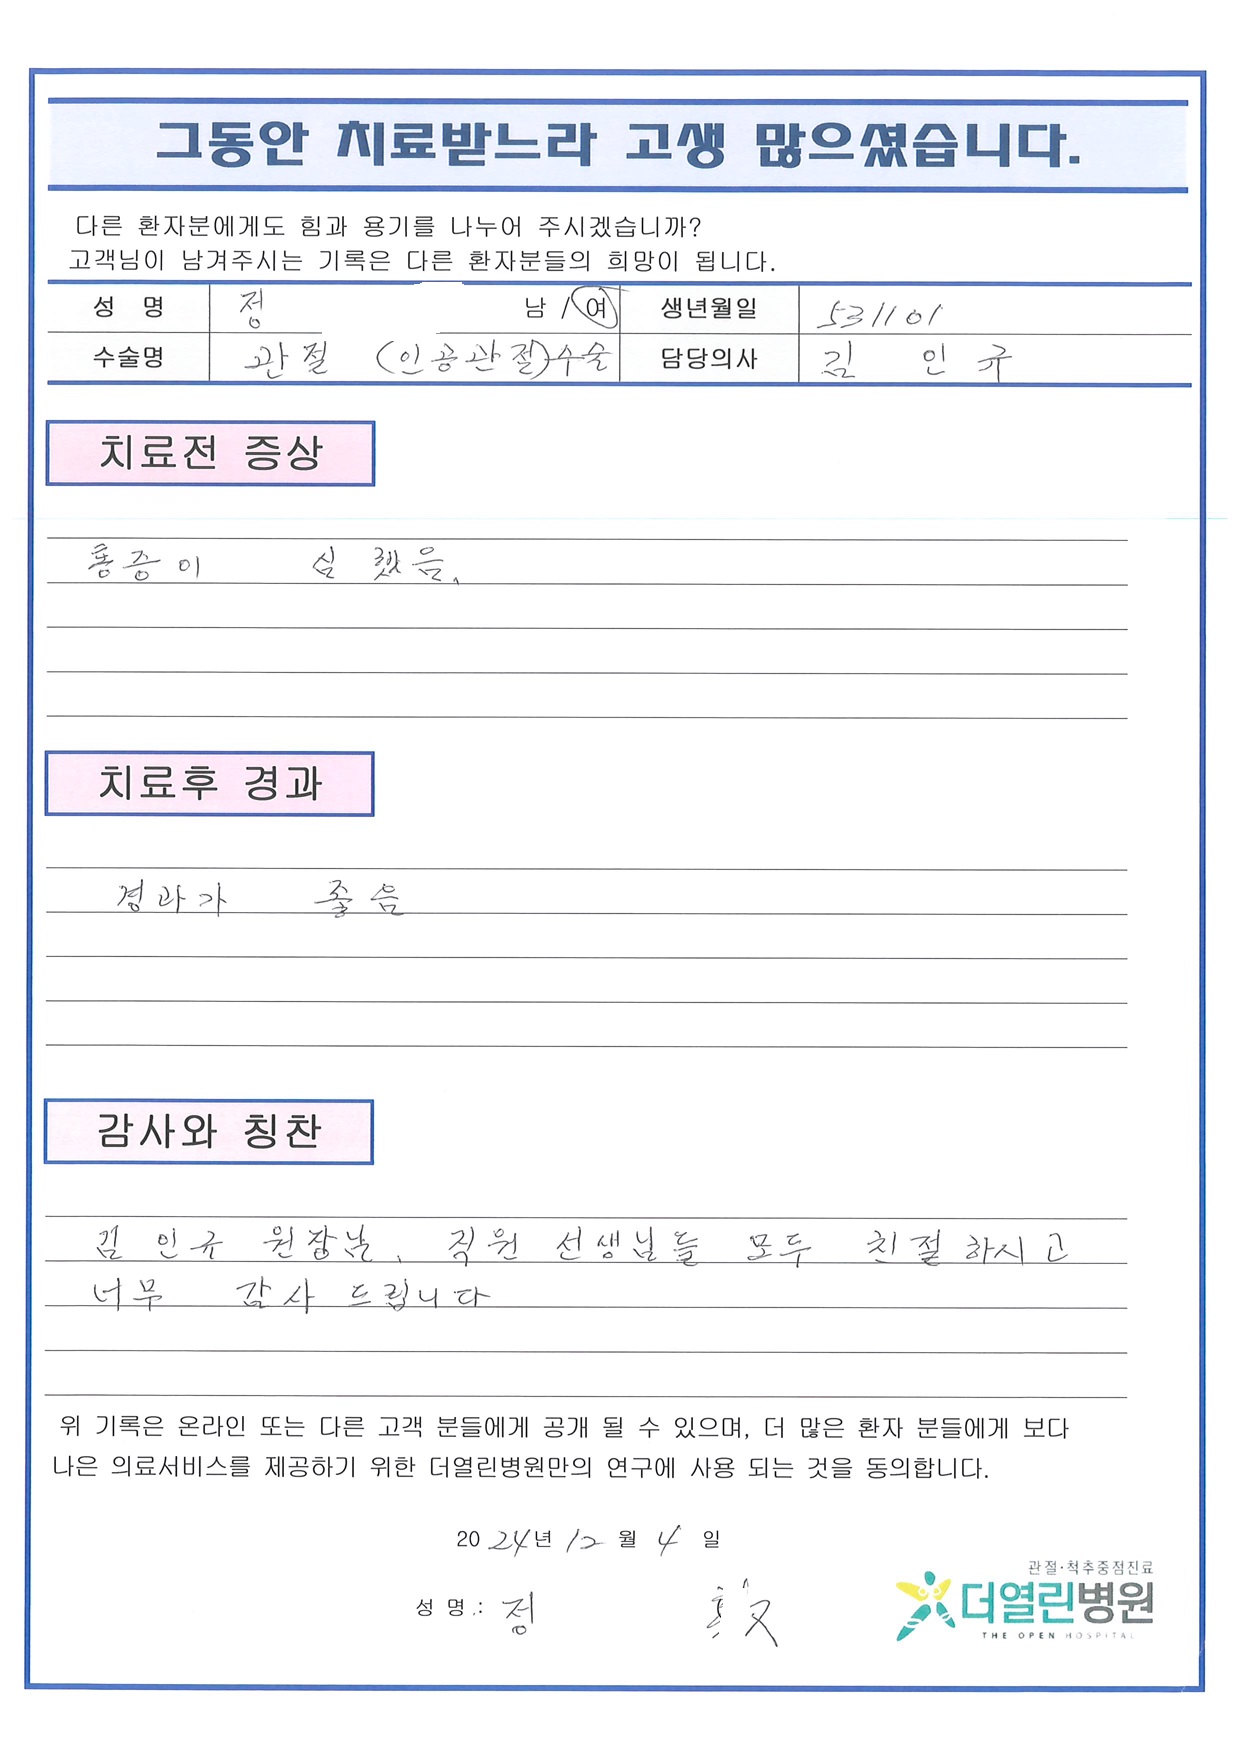 그동안 치료받느라 고생 많으셨습니다.
다른 환자분에게도 힘과 용기를 나누어 주시겠습니까?
고객님이 남겨주시는 기록은 다른 환자분들의 희망이 됩니다.
성 명 정 남 / 여 생년월일 531101
수술명 관절 (인공관절)수술 담당의사 김 인 규
치료전 증상
통증이 심했음.
치료후 경과
경과가 좋음
감사와 칭찬
김 인규 원장님, 직원 선생님들 모두 친절하시고
너무 감사 드립니다
위 기록은 온라인 또는 다른 고객 분들에게 공개 될 수 있으며, 더 많은 환자 분들에게 보다
나은 의료서비스를 제공하기 위한 더열린병원만의 연구에 사용 되는 것을 동의합니다.
2024년 12월 4일
관절·척추중점진료
성 명 : 정
더열린병원
THE OPEN HOSPITAL